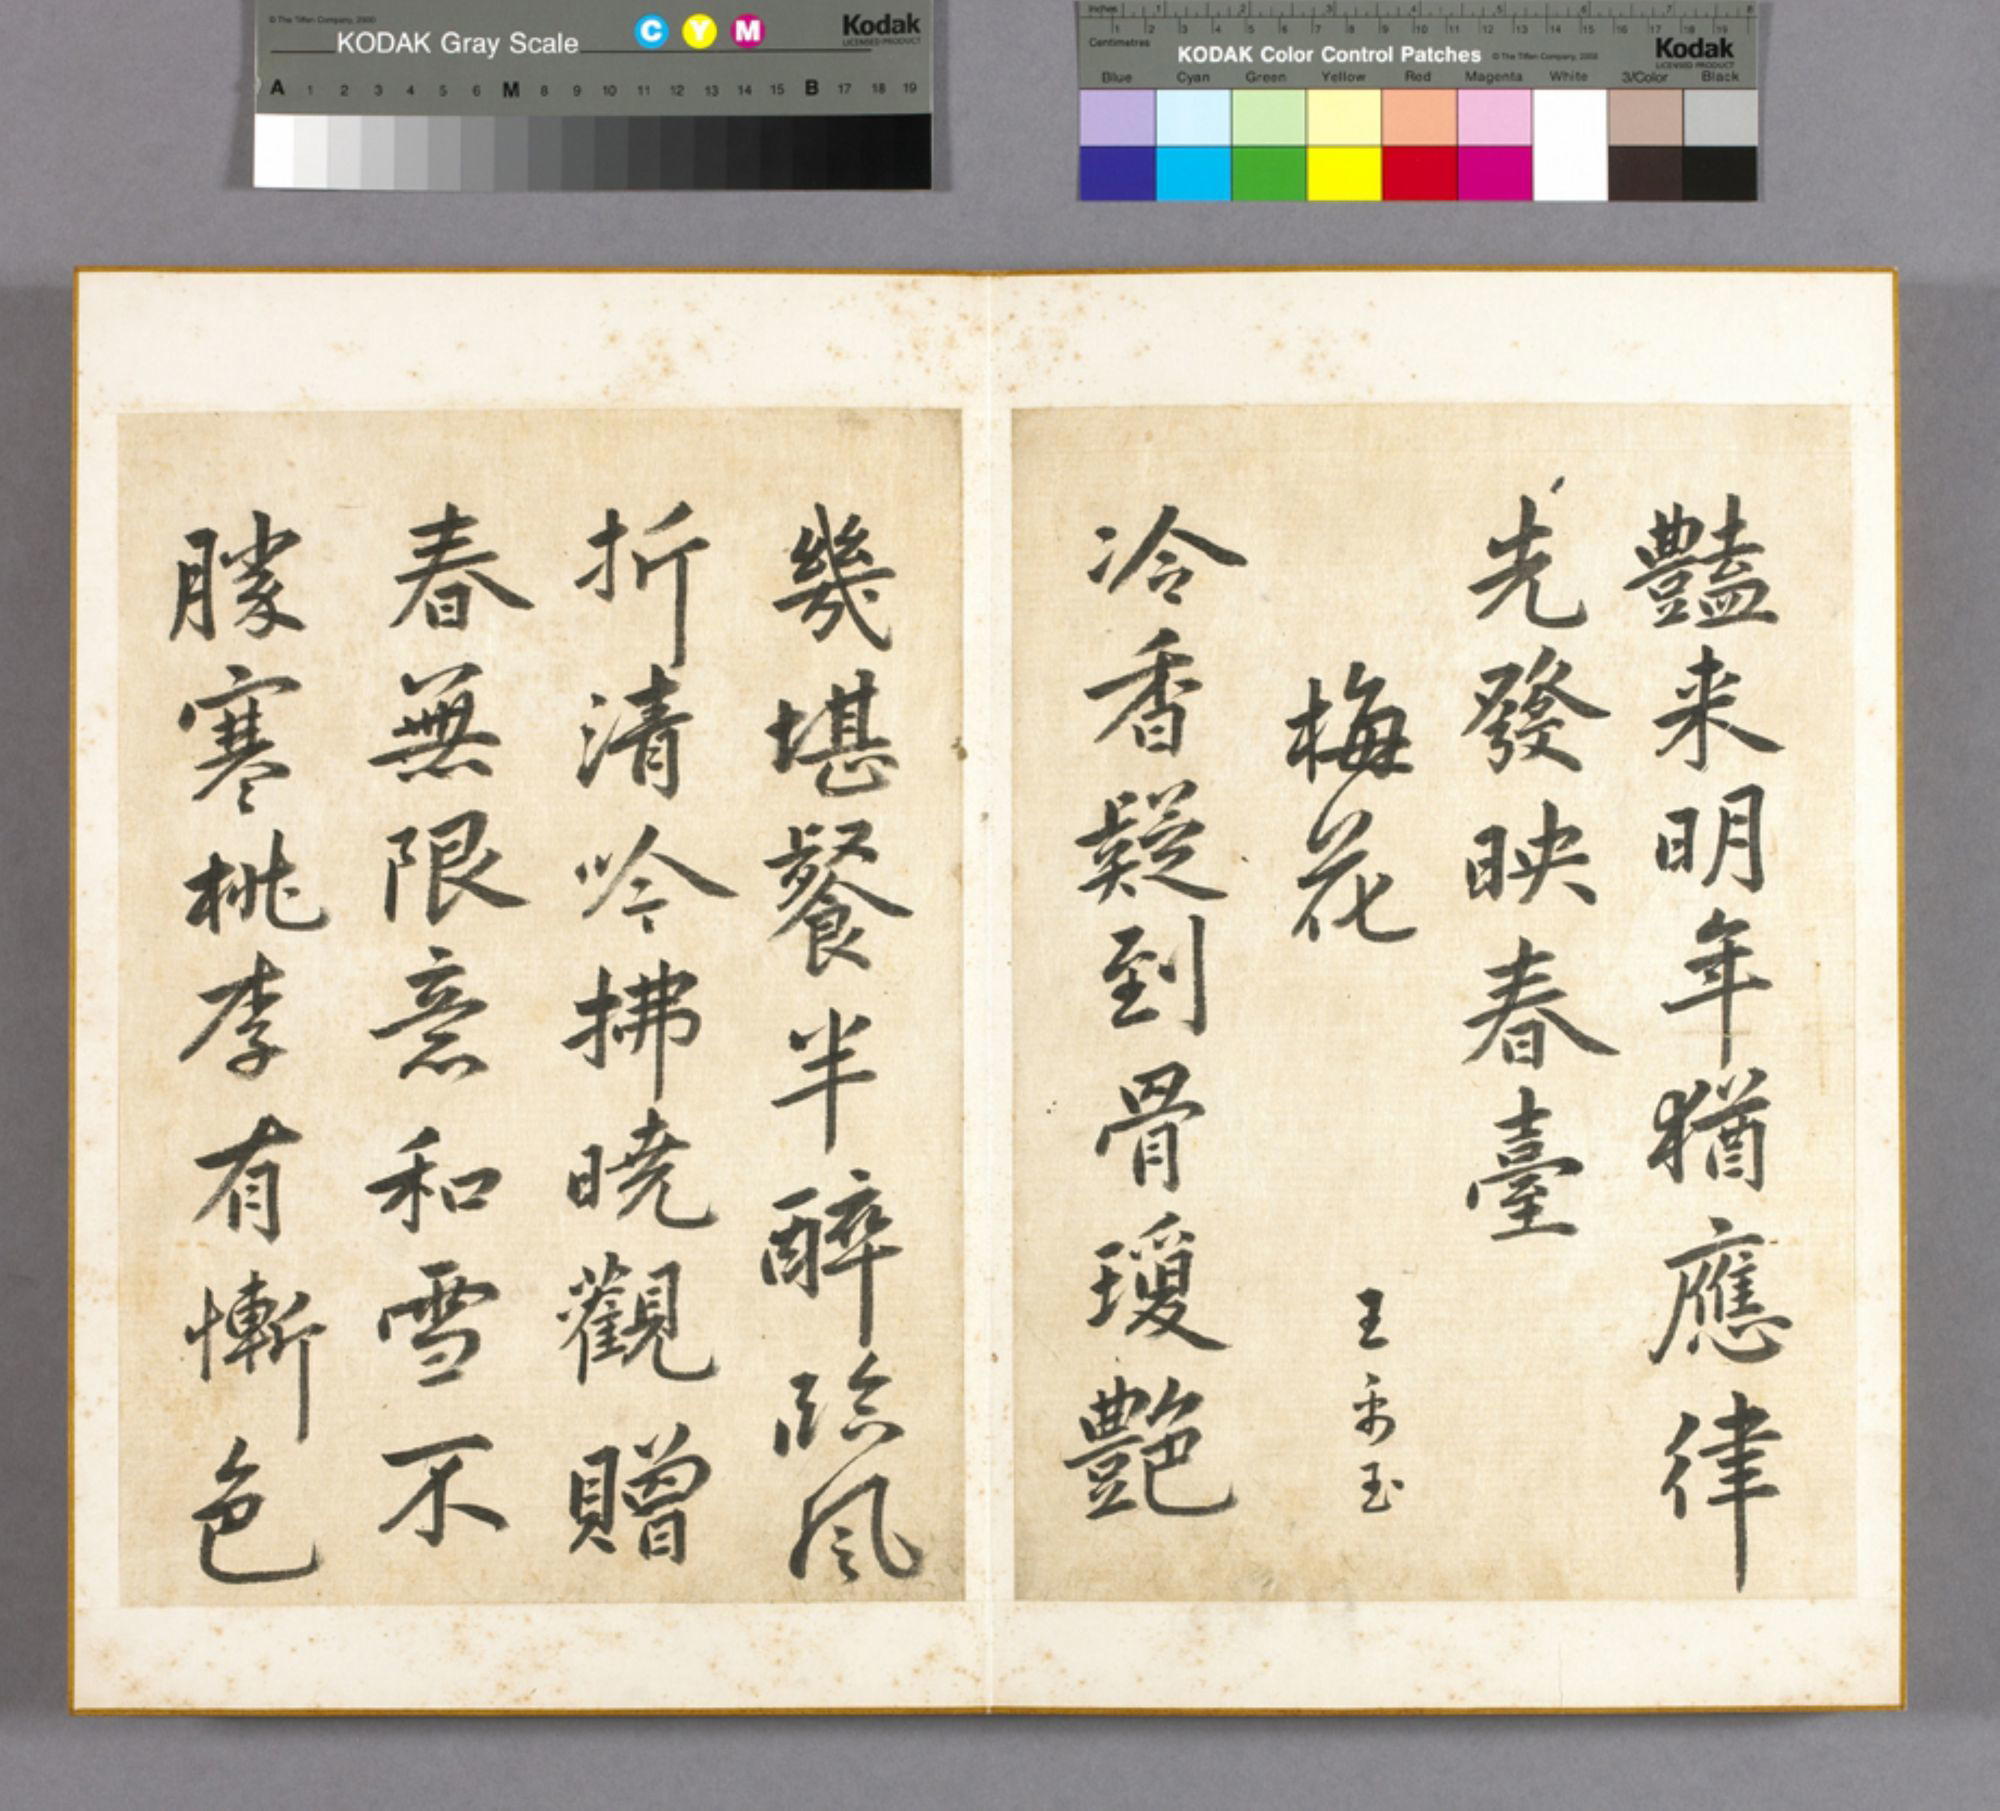 © The Tiffen Company, 2000
KODAK Gray Scale
C Y M
Kodak
LICENSED PRODUCT
A 1 2 3 4 5 6 M 8 9 10 11 12 13 14 15 B 17 18 19
Inches 1 2 3 4 5 6 7 8
Centimetres 1 2 3 4 5 6 7 8 9 10 11 12 13 14 15 16 17 18 19
KODAK Color Control Patches
© The Tiffen Company, 2000
Kodak
LICENSED PRODUCT
Blue Cyan Green Yellow Red Magenta White 3/Color Black
豔来明年猶應律
先發映春臺
梅花 王禹玉
冷香疑到骨瓊艷
幾堪餐半醉臨風
折清吟拂曉觀贈
春無限意和雪不
勝寒桃李有慚色